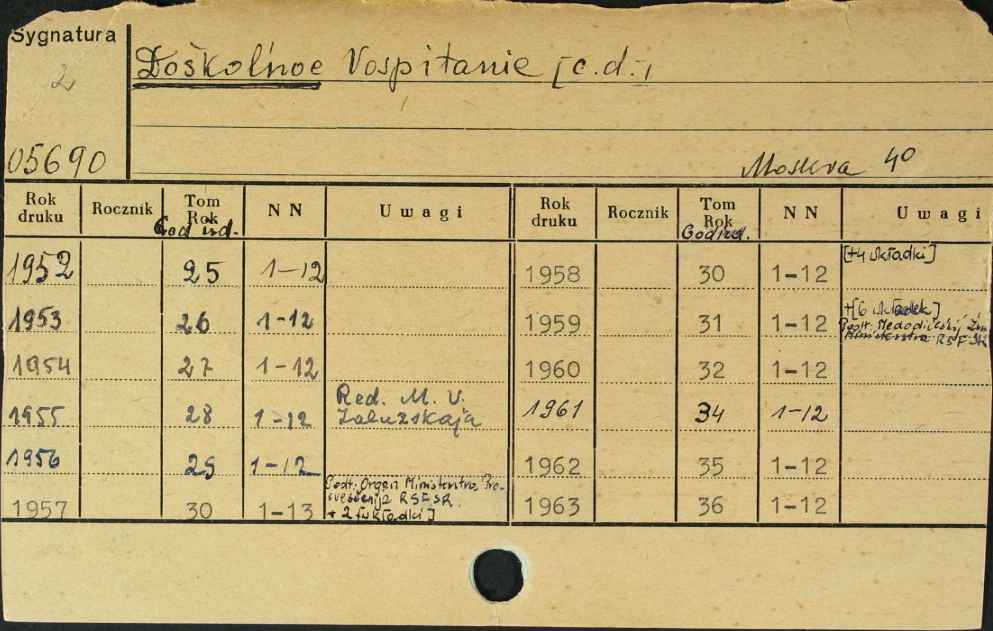 Sygnatura
2
05690
Doškol'noe Vospitanie [c.d.]
Moskva 4°
Rok druku Rocznik Tom Rok God izd. NN Uwagi Rok druku Rocznik Tom Rok God izd. NN Uwagi
1952 25 1-12 1958 30 1-12 [+4 wkładki]
1953 26 1-12 1959 31 1-12 +[6 wkładek]
Ministerstva RSFSR
1954 27 1-12 1960 32 1-12
1955 28 1-12 Red. M. V. Zalužskaja 1961 34 1-12
1956 29 1-12 1962 35 1-12
1957 30 1-13 Organ Ministerstva Prosveščenija RSFSR + 2 [wkładki] 1963 36 1-12